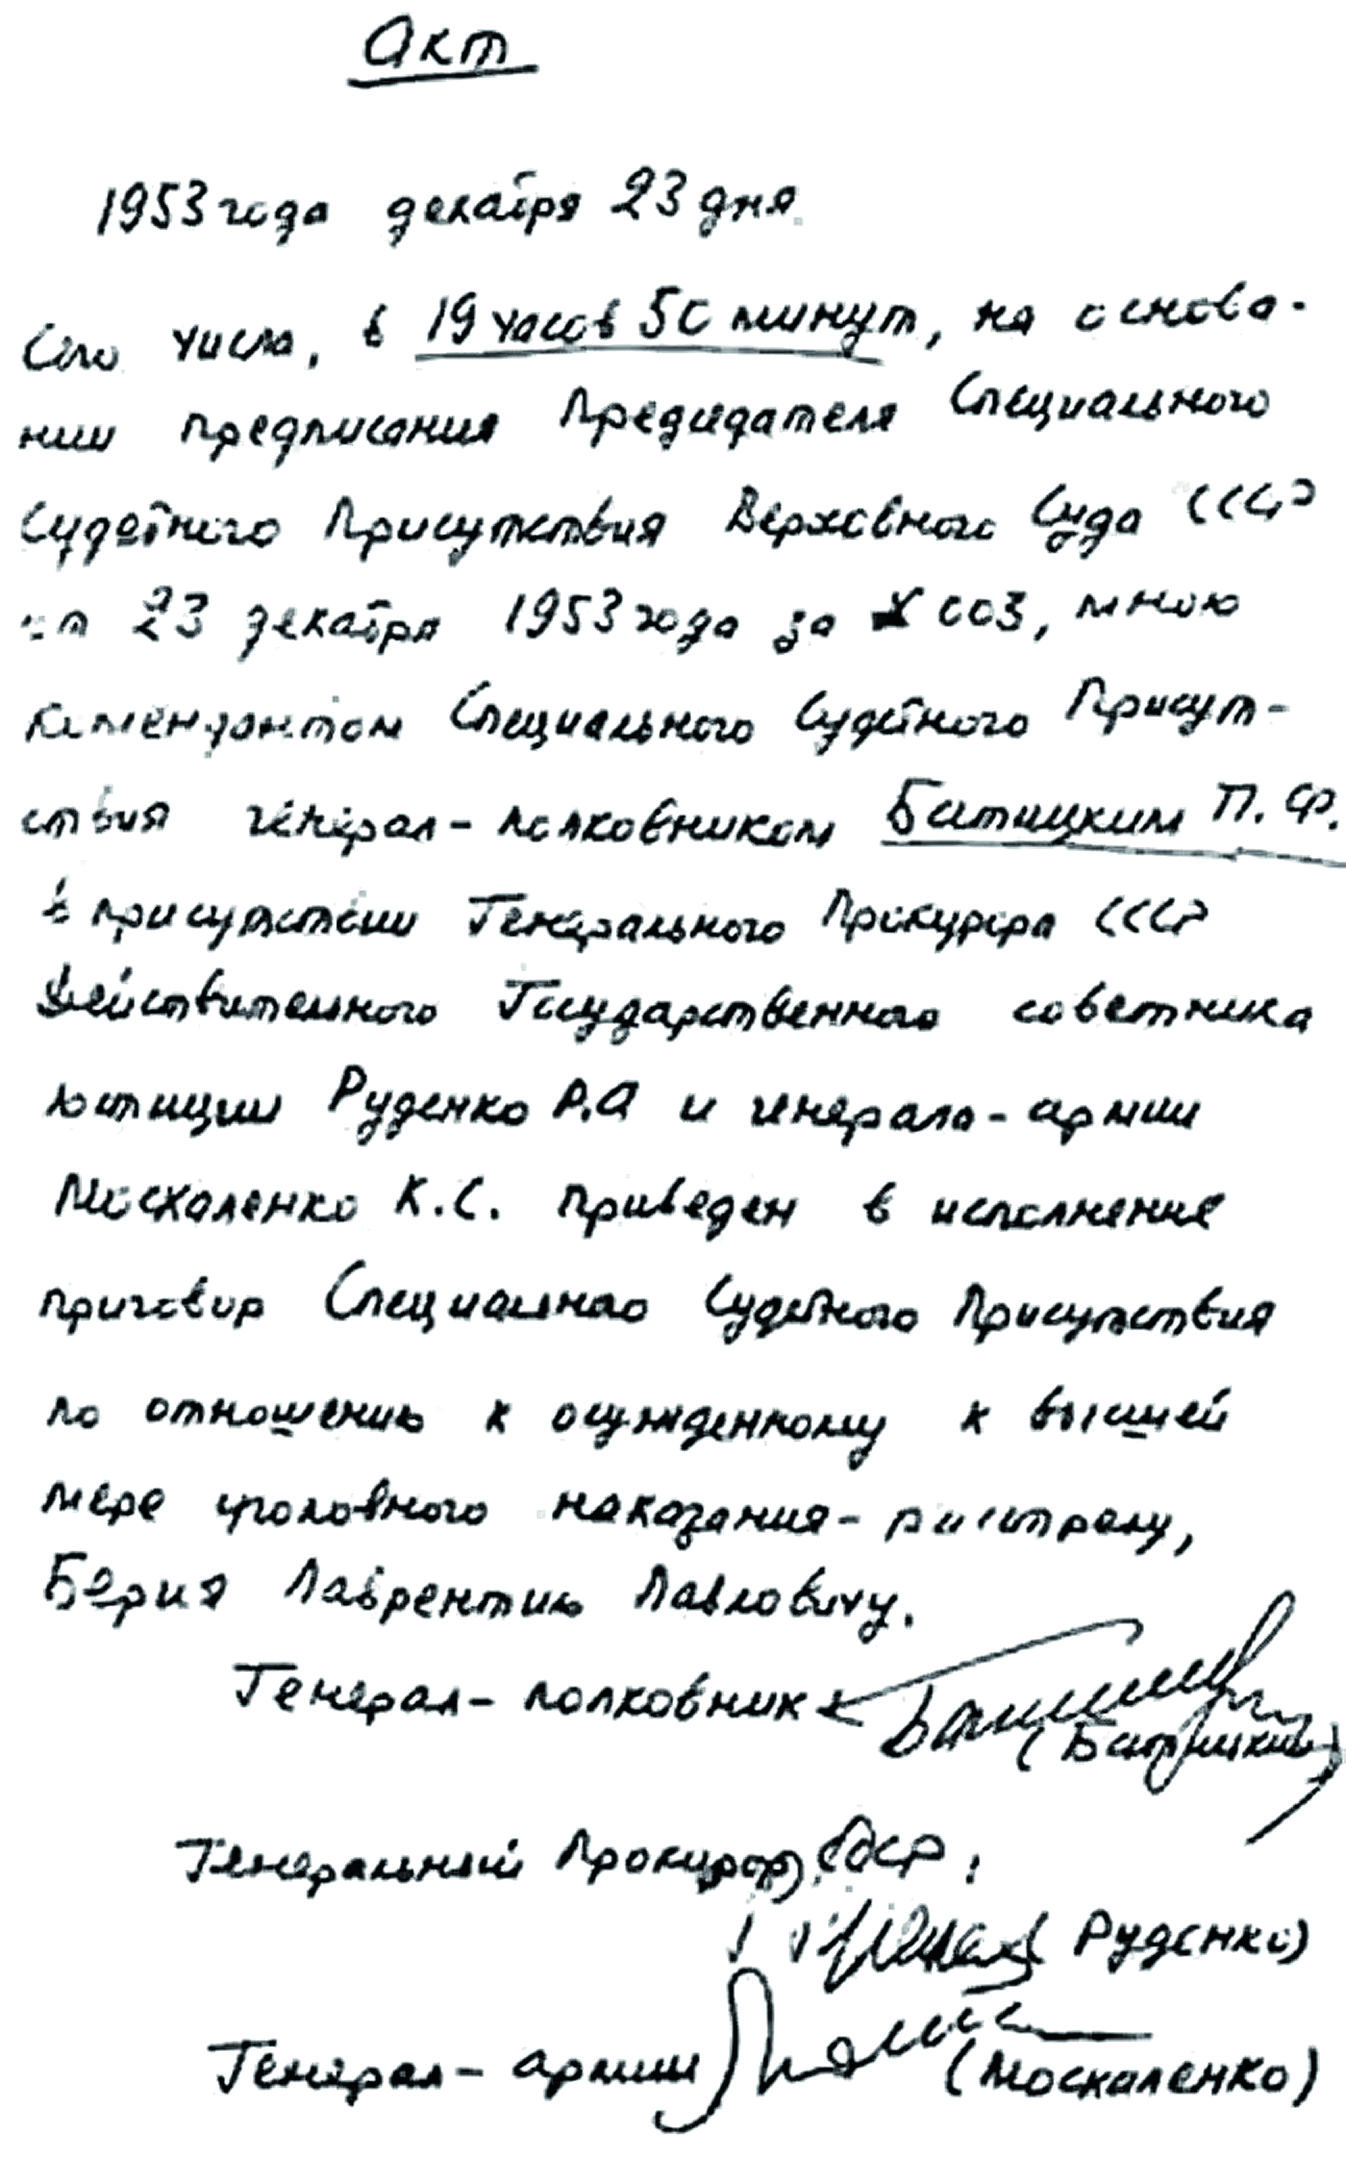 Акт
1953 года декабря 23 дня.
Сего числа, в 19 часов 50 минут, на основа-
нии предписания Председателя Специального
Судебного Присутствия Верховного Суда СССР
от 23 декабря 1953 года за № 003, мною
комендантом Специального Судебного Присут-
ствия генерал-полковником Батицким П.Ф.
в присутствии Генерального Прокурора СССР
Действительного Государственного советника
юстиции Руденко Р.А и генерала-армии
Москаленко К.С. приведен в исполнение
приговор Специального Судебного Присутствия
по отношению к осужденному к высшей
мере уголовного наказания-расстрелу,
Берия Лаврентию Павловичу.
Генерал-полковник
(Батицкий)
Генеральный Прокурор СССР.
(Руденко)
Генерал-армии
(Москаленко)